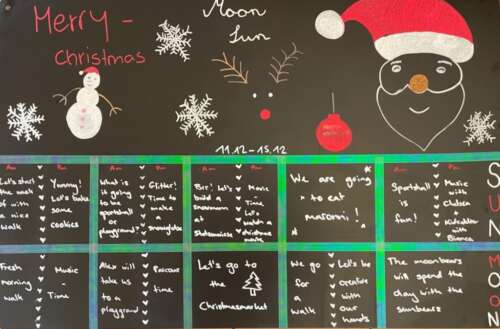 Merry -
Christmas
Moon
Sun
11.12 - 15.12
Am Pm
Let's start
the day
with
a nice
walk
Yummy!
Let's bake
some
cookies
Am Pm
What is
it going
to be
sportshall
or
playground?
Glitter!
Time to
make
a
snowglobe
Am Pm
Brr! Let's
build a
snowman
at
Movie
Time
Let's
watch a
christmas
movie
We are going
to eat
Am Pm
Sportshall
is
fun!
Music
with
Chelsea
+
with
Bianca
SUN
Fresh
morning
walk
Music
-
Time
Alex will
take us
to a
playground
time
Let's go
to the
Christmasmarket
We
go
for
a
walk
Let's be
creative
with
our
hands
The moonbears
will spend the
day with the
sunbears
MOON